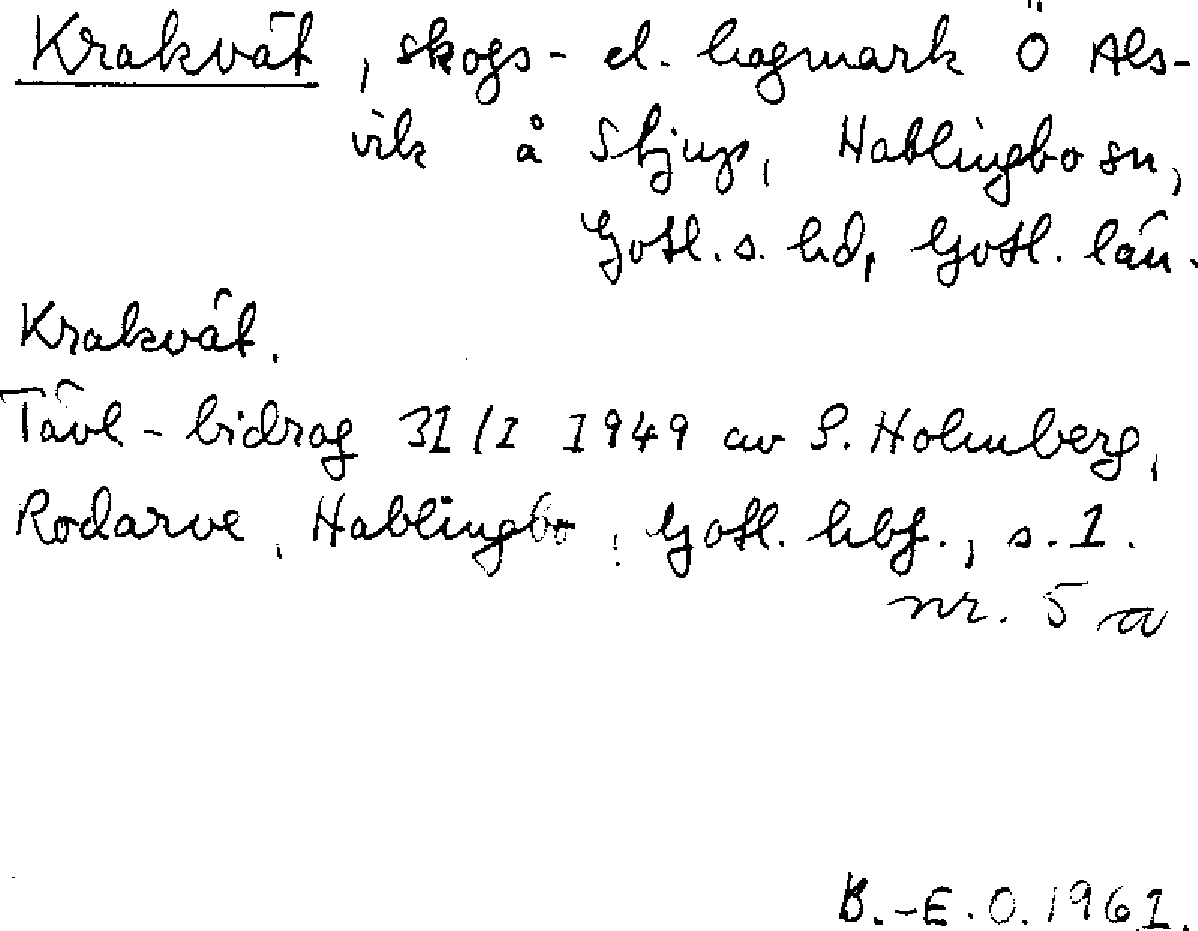 Krakvät, skogs- el. hagmark Ö Als-
vik å Stjups, Hablingbo sn,
Gotl. s. hd, Gotl. län.
Krakvät.
Tävl-bidrag 31/1 1949 av S. Holmberg,
Rodarve, Hablingbo, Gotl. hbf., s. 1.
nr. 5 a
B.-E.O. 1961.